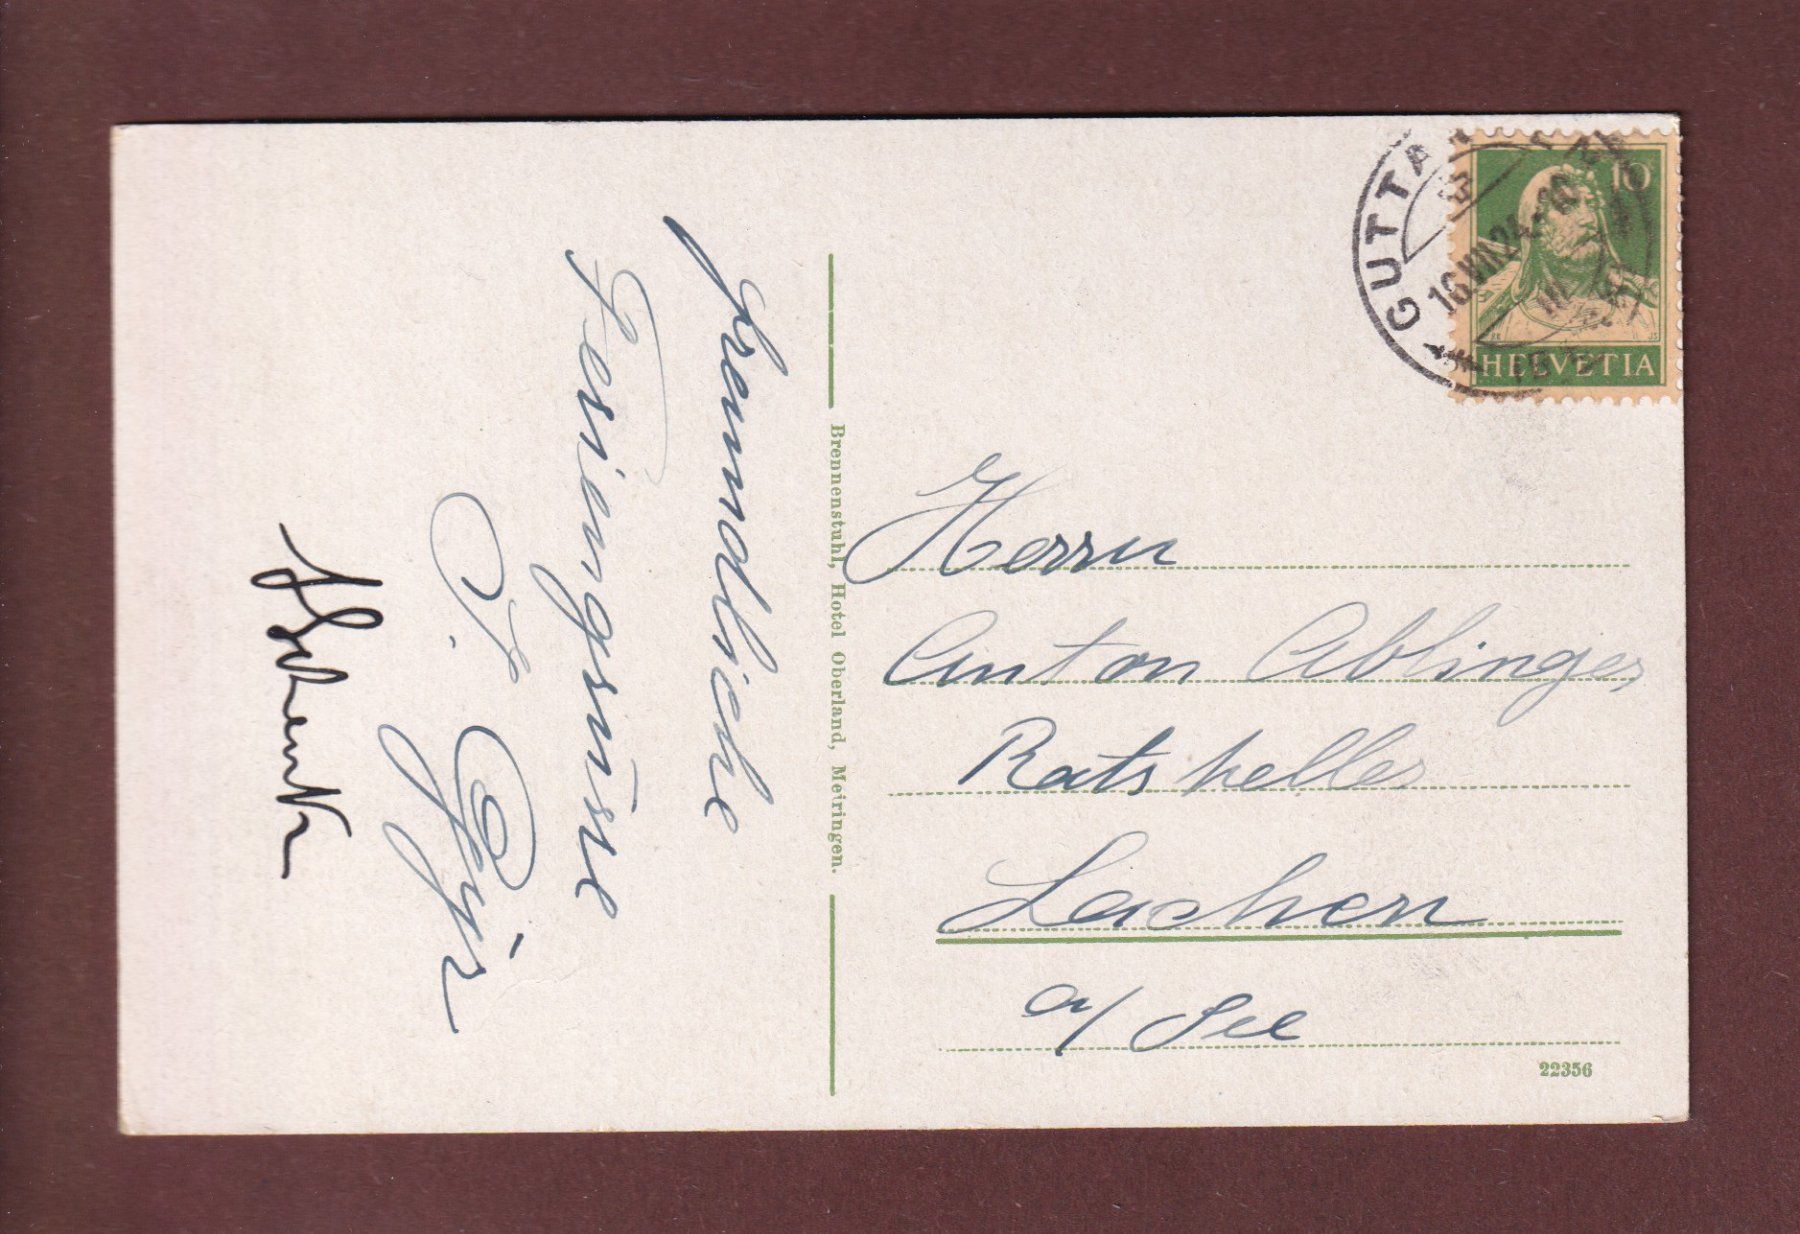 freundliche
Feriengrüsse
Brennenstuhl, Hotel Oberland, Meiringen.
GUTTA
16.VIII.24
10
HELVETIA
Herrn
Anton Ablinger
Ratskeller
Lachen
a/See
22356